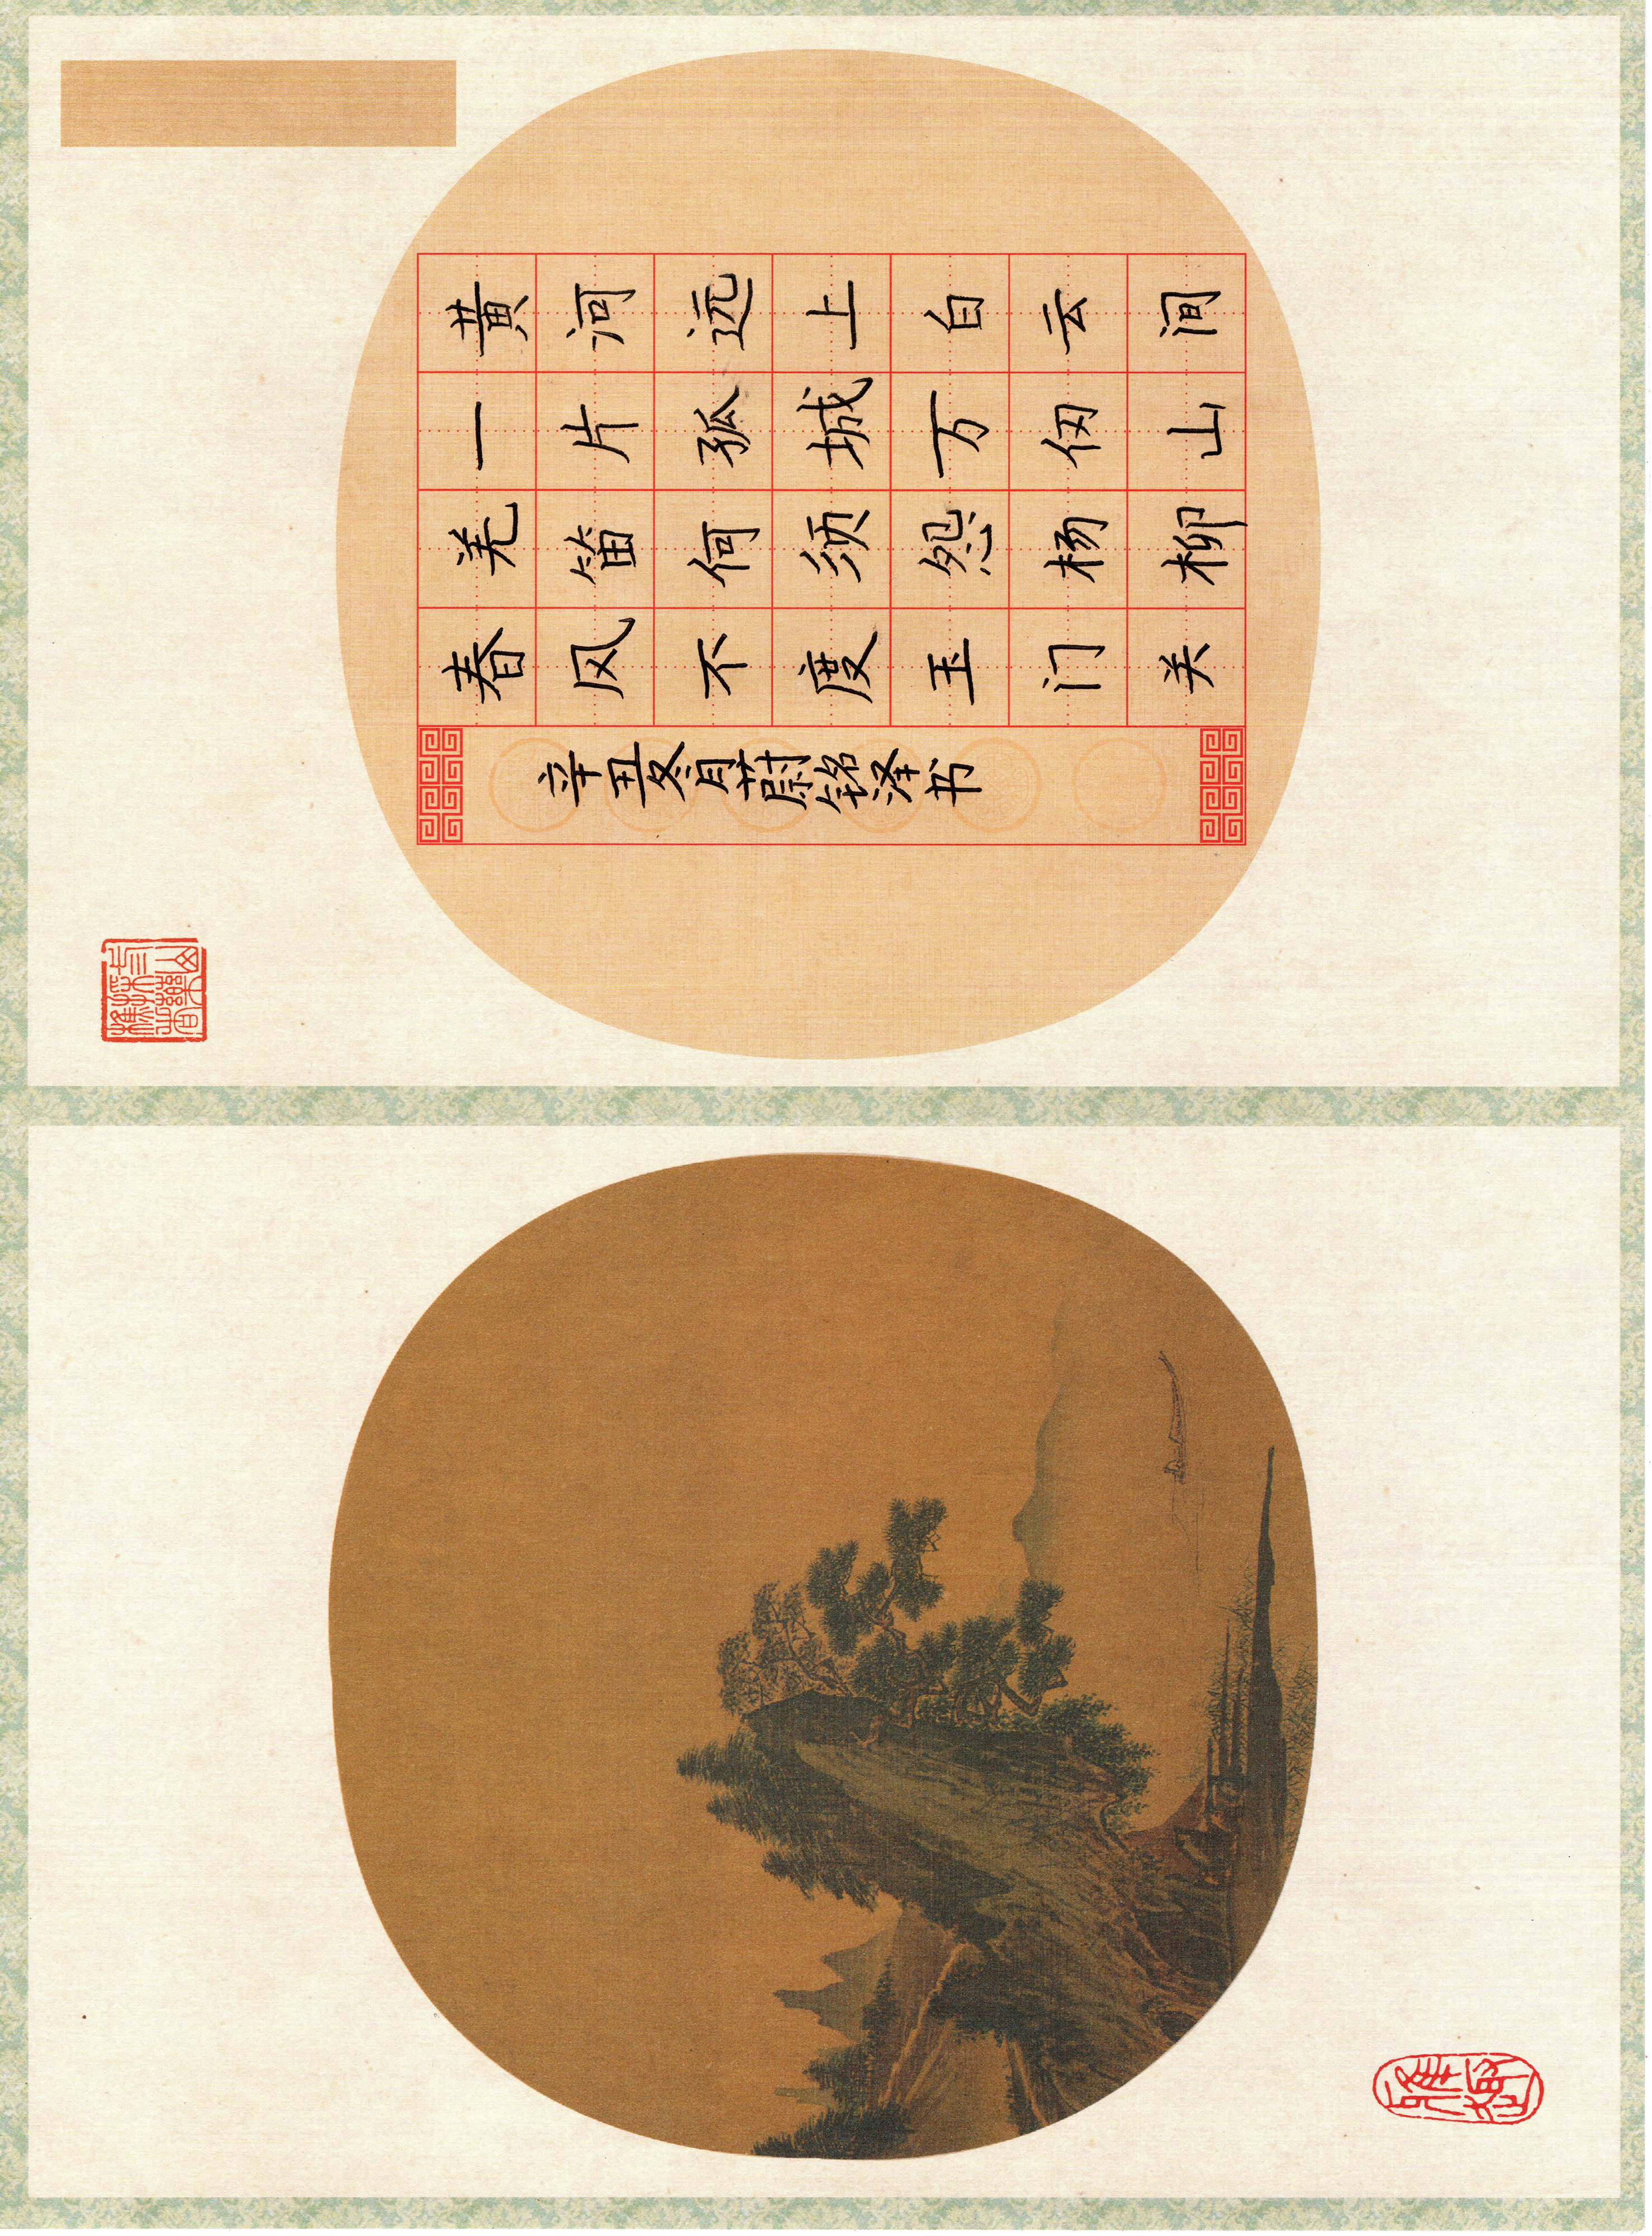 黄河远上白云间
一片孤城万仞山
羌笛何须怨杨柳
春风不度玉门关
辛丑冬月蔚铭泽书